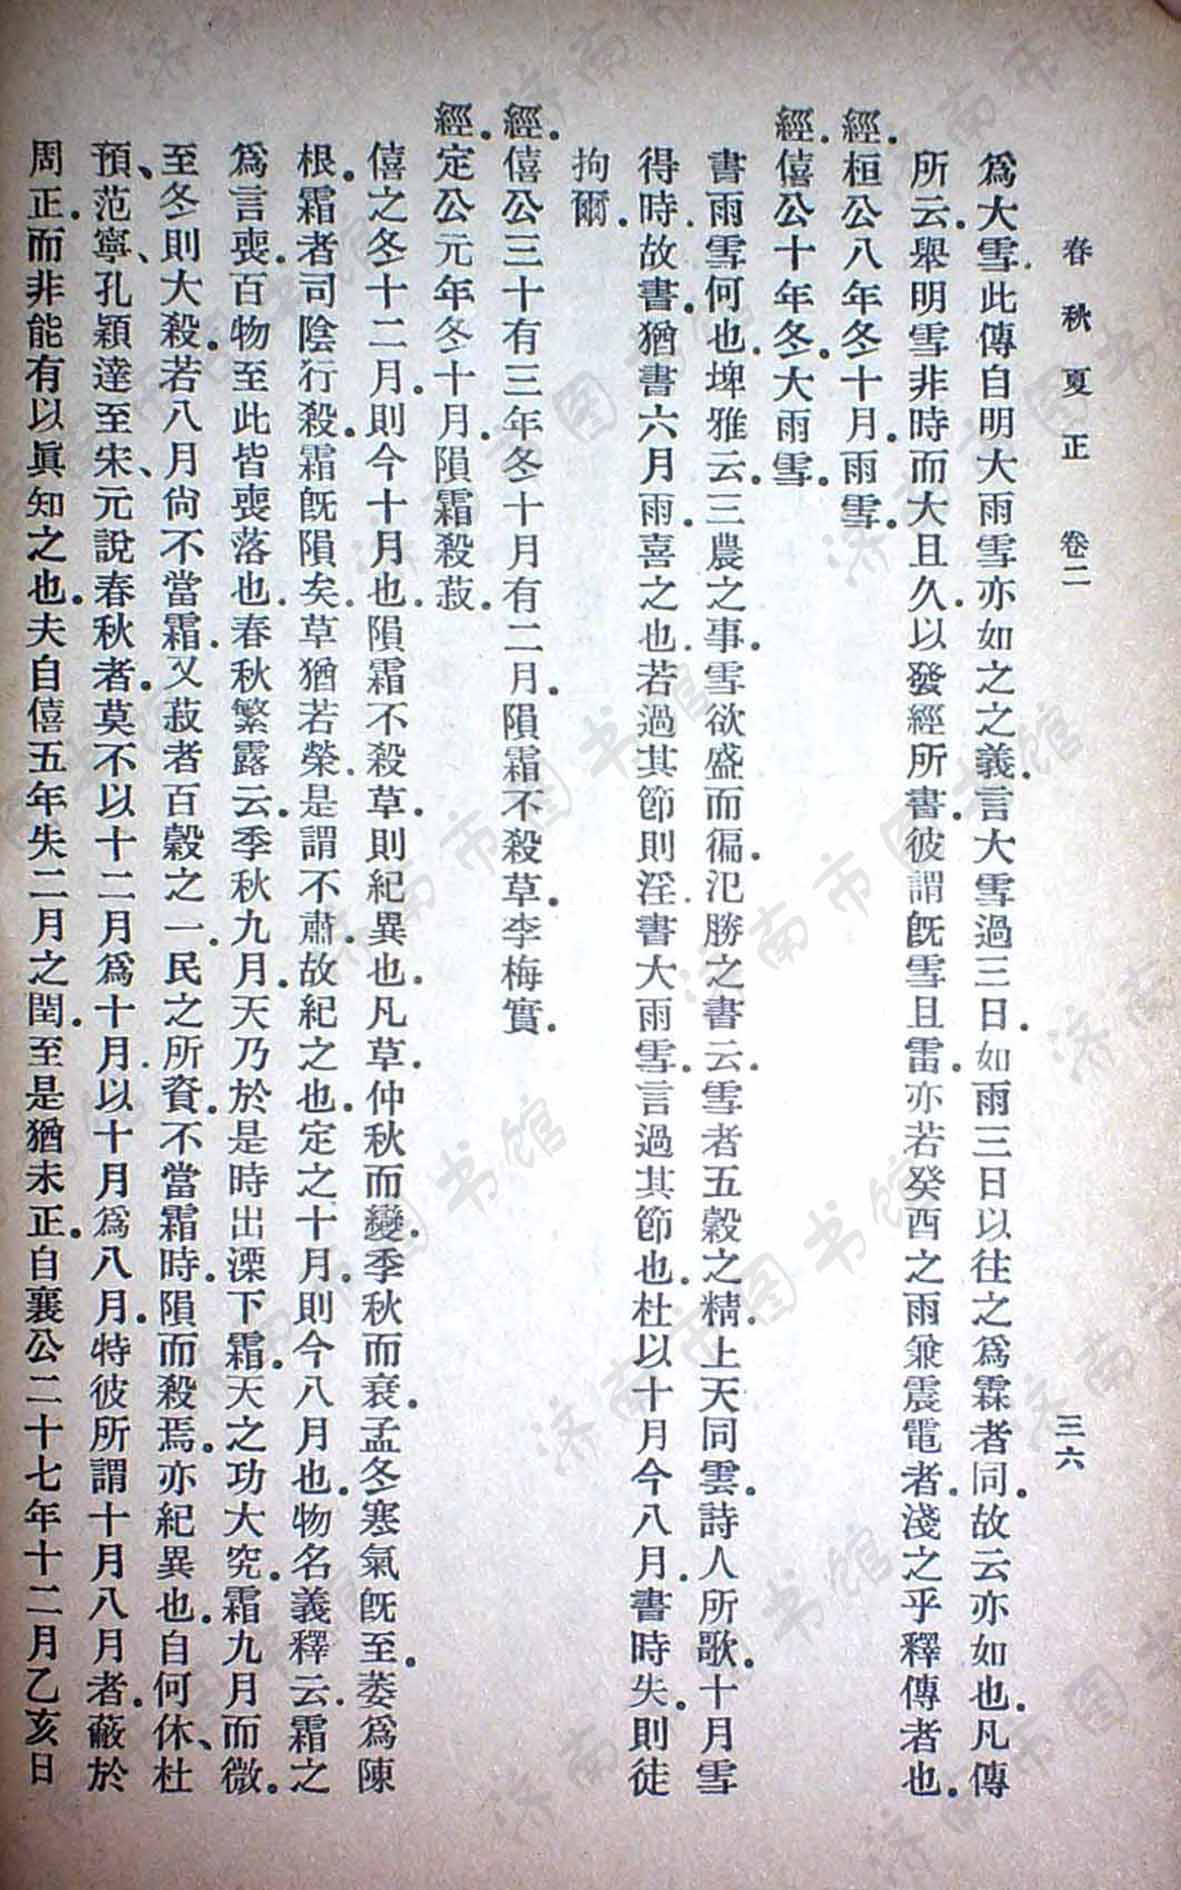 春秋夏正　卷二　三六
爲大雪．此傳自明大雨雪亦如之之義．言大雪過三日．如雨三日以往之爲霖者同．故云亦如也．凡傳
所云．舉明雪非時而大且久．以發經所書．彼謂旣雪且雷．亦若癸酉之雨兼震電者．淺之乎釋傳者也．
經．桓公八年冬．十月．雨雪．
經．僖公十年冬．大雨雪．
書雨雪何也．埤雅云．三農之事．雪欲盛而徧．氾勝之書云．雪者五穀之精．上天同雲．詩人所歌．十月雪
得時．故書．猶書六月雨．喜之也．若過其節則淫．書大雨雪．言過其節也．杜以十月今八月．書時失．則徒
拘爾．
經．僖公三十有三年冬十月有二月．隕霜不殺草．李梅實．
經．定公元年冬．十月．隕霜殺菽．
僖之冬十二月．則今十月也．隕霜不殺草．則紀異也．凡草．仲秋而變．季秋而衰．孟冬寒氣旣至．萎爲陳
根．霜者司陰行殺．霜旣隕矣．草猶若榮．是謂不肅．故紀之也．定之十月．則今八月也．物名義釋云．霜之
爲言喪．百物至此皆喪落也．春秋繁露云．季秋九月．天乃於是時出溧下霜．天之功大究．霜九月而微．
至冬則大殺．若八月尙不當霜．又菽者百穀之一．民之所資．不當霜時．隕而殺焉．亦紀異也．自何休、杜
預、范寧、孔穎達至宋、元說春秋者．莫不以十二月爲十月．以十月爲八月．特彼所謂十月八月者．蔽於
周正．而非能有以眞知之也．夫自僖五年失二月之閏．至是猶未正．自襄公二十七年十二月乙亥日
济南市图书馆